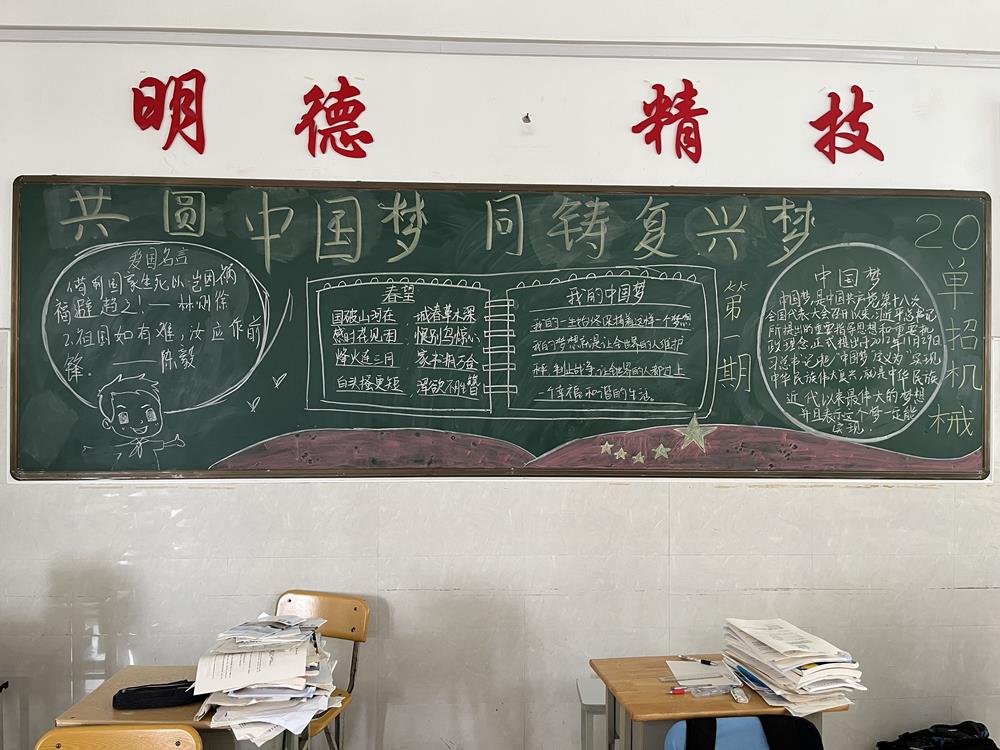 明德 精技
共圆中国梦 同铸复兴梦
爱国名言
利国家生死以岂因祸
福避趋之！——林则徐
2.祖国如有难，汝应作前
锋．——陈毅
春望
国破山河在，城春草木深
感时花见泪，恨别鸟惊心
烽火连三月，家书抵万金
白头搔更短，浑欲不胜簪
我的中国梦
我的一生始终保持着这样一个梦想
我的梦想就是让全世界的人维护
和平，制止战争，让全世界的人都过上
一个幸福和谐的生活。
第一期
中国梦
中国梦，是中国共产党第十八次
全国代表大会召开以来，习近平总书记
所提出的重要指导思想和重要执
政理念，正式提出于2012年11月29日
习总书记把“中国梦”定义为“实现
中华民族伟大复兴，就是中华民族
近代以来最伟大的梦想
并且表示这个梦一定能
实现.
20单招机械